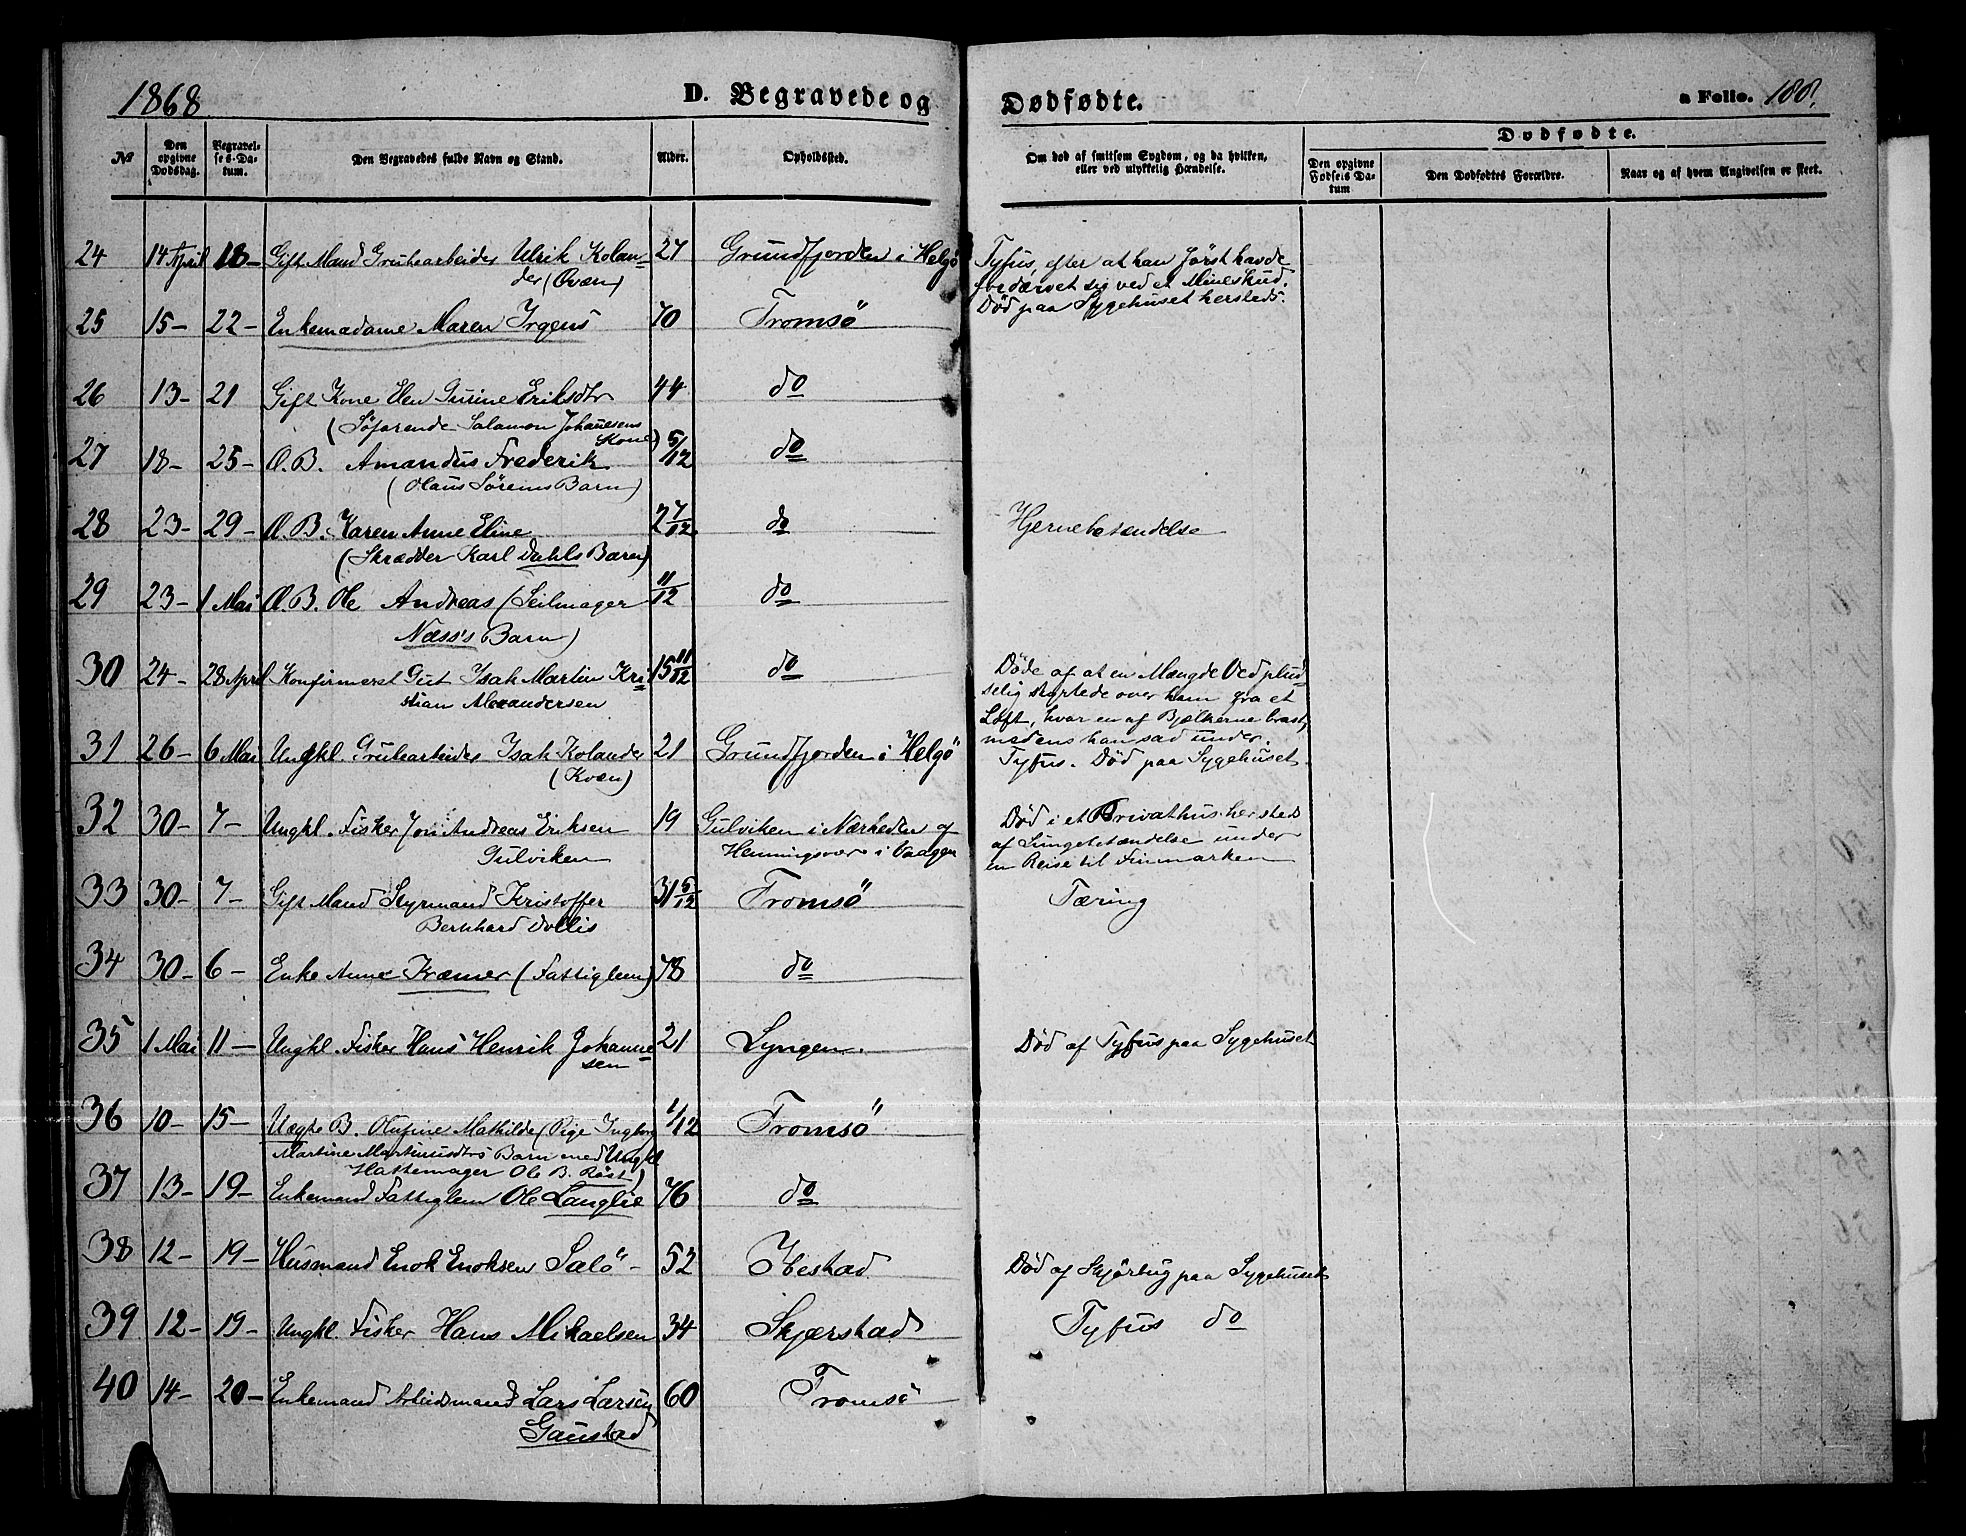 1868 D. Begravede og Dødfødte. a Folio. 188.
Dødfødte.
№ Den opgivne Dødsdag. Begravelses-Datum. Den Begravedes fulde Navn og Stand. Alder. Opholdssted. Om død af smitsom Sygdom, og da hvilken, eller ved ulykkelig Hændelse. Den opgivne Fødsels Datum Den Dødfødtes Forældre. Naar og af hvem Angivelsen er skeet.
24 14 April 18– Gift Mand Grubearbeider Ulrik Kolan= 27 Grundfjorden i Helgö Tyfus, efter at han først havde
der (Qvæn) fordærvet sig ved et Mineskud.
Död paa Sygehuset hersteds.
25 15– 22– Enkemadame Maren Irgens 70 Tromsö
26 13– 21 Gift Kone Elen Gurine Eriksdtr 44 do
(Søfarende Salamon Johannesens
Kone)
27 18– 25– Æ. B. Amandus Frederik 5/12 do
(Olaus Sörens Barn)
28 23– 29– Æ. B. Karen Anne Eline 2 7/12 do Hjernebetændelse
(Skrædder Karl Dahls Barn)
29 23– 1 Mai Æ. B. Ole Andreas (Seilmager 11/12 do
Næss's Barn)
30 24– 28 April Konfirmeret Gut Isak Martin Kri= 15 11/12 do Döde af at en Mængde Ved plud=
stian Alexandersen selig styrtede over ham fra et
Loft, hvor en af Bjelkerne brast,
medens han sad under.
31 26– 6 Mai Ungkl. Grubearbeider Isak Kolander 21 Grundfjorden i Helgö Tyfus. Död paa Sygehuset.
(Kvæn)
32 30– 7– Ungkl. Fisker Jon Andreas Eriksen 19 Gulviken i Nærheden af Död i et Privathus hersteds
Gulviken Henningsvær i Vaagen af Lungebetændelse under
en Reise til Finmarken
33 30– 7– Gift Mand Styrmand Kristoffer 31 5/12 Tromsö Tæring
Bernhard Dollis
34 30– 6– Enke Anne Kræmer (Fattiglem) 78 do
35 1 Mai 11– Ungkl. Fisker Hans Henrik Johanne= 21 Lyngen. Död af Tyfus paa Sygehuset
sen
36 10– 15– Uægte B. Olufine Mathilde (Pige Ingborg 1/12 Tromsö
Martine Martinusdtrs Barn med Ungkl
Hattemager Ole B. Röst)
37 13– 19– Enkemand Fattiglem Ole Langlie 76 do
38 12– 19– Husmand Enok Enoksen Salö– 52 Ibestad Död af Skjörbug paa Sygehuset
39 12– 19– Ungkl. Fisker Hans Mikaelsen 34 Skjerstad Tyfus do
40 14– 20– Enkemand Arbeidsmand Lars Larsen 60 Tromsö
Gaustad